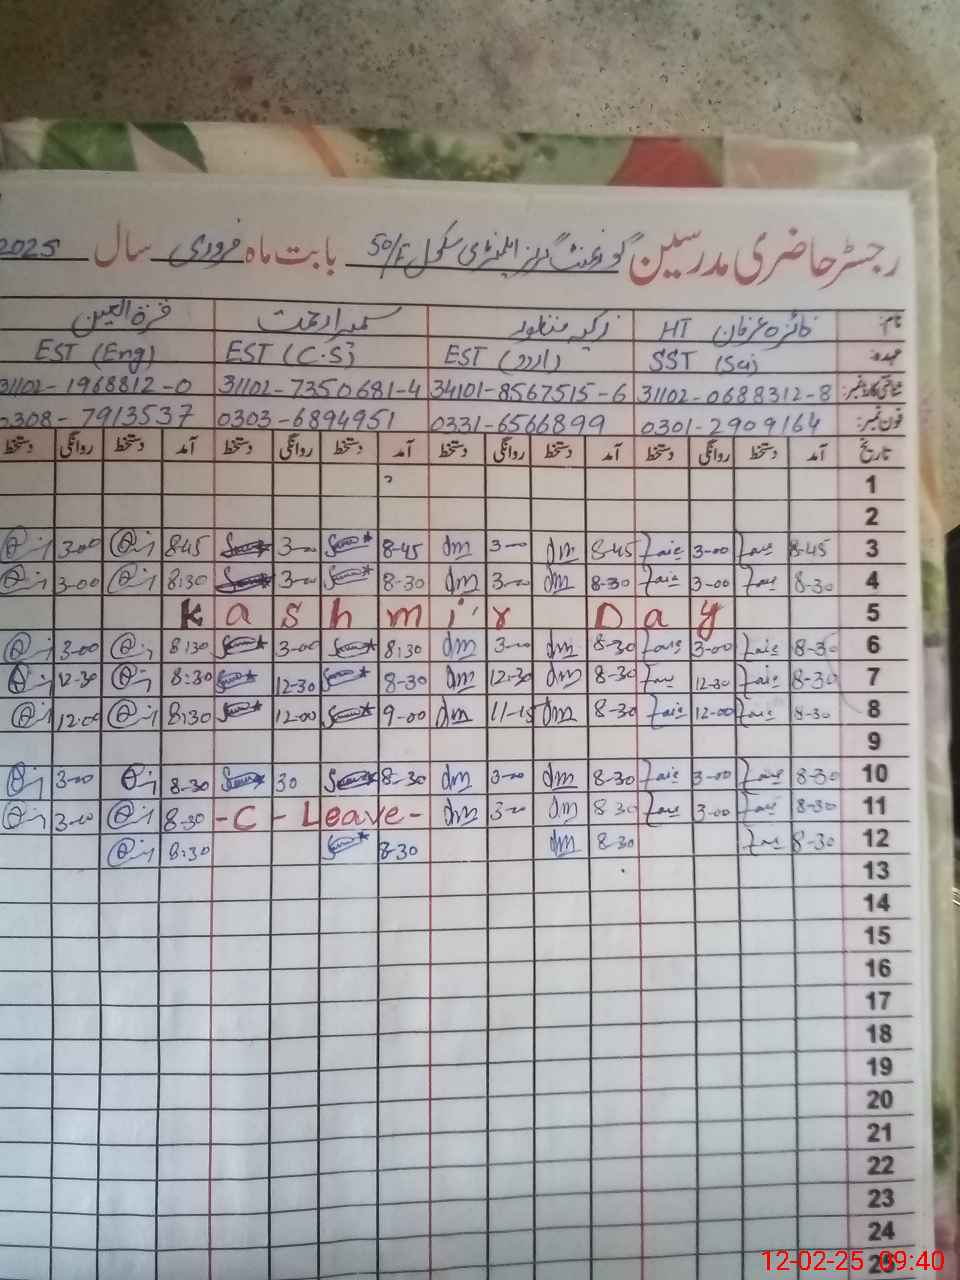 رجسٹر حاضری مدرسین گورنمنٹ گرلز ایلیمنٹری سکول 50/F بابت ماہ فروری سال 2025
نام: فائزہ عرفان HT زکیہ منظور سمیرا رحمت قرۃ العین
عہدہ: SST (Sci) EST (اردو) EST (C.S) EST (Eng)
شناختی کارڈ نمبر: 31102-0688312-8 34101-8567515-6 31102-7350681-4 31102-1968812-0
فون نمبر: 0301-2909164 0331-6566899 0303-6894951 0308-7913537
تاریخ آمد دستخط روانگی دستخط آمد دستخط روانگی دستخط آمد دستخط روانگی دستخط آمد دستخط روانگی دستخط
1
2
3 8-45 3-00 8-45 3-00 8-45 3-00 8-45 3-00
4 8-30 3-00 8-30 3-00 8-30 3-00 8:30 3-00
5 Kashmir Day
6 8-30 3-00 8-30 3-00 8:30 3-00 8:30 3-00
7 8-30 12-30 8-30 12-30 8-30 12-30 8:30 12-30
8 8-30 12-00 8-30 11-15 9-00 12-00 8:30 12:00
9
10 8-30 3-00 8-30 3-00 8-30 30 8-30 3-00
11 8-30 3-00 8 30 3-00 -C- Leave- 8-30 3-00
12 8-30 8-30 8-30 8:30
13
14
15
16
17
18
19
20
21
22
23
24
25
12-02-25 09:40